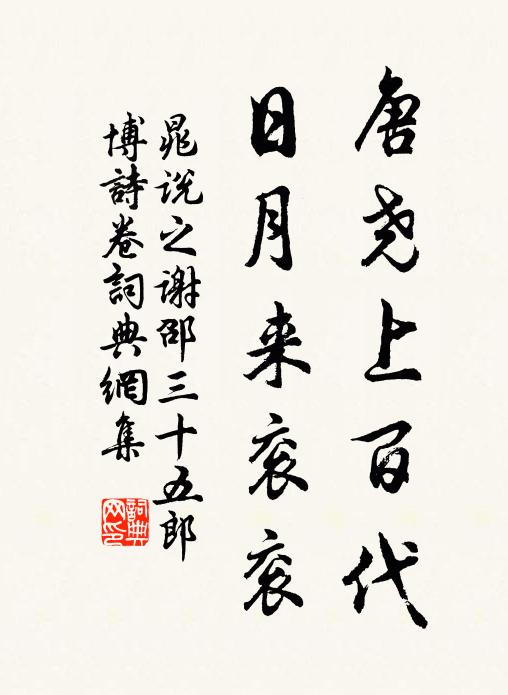 唐尧上百代
日月来衮衮
晁说之谢邵三十五郎
博詩卷詞典網集
詞典
网印